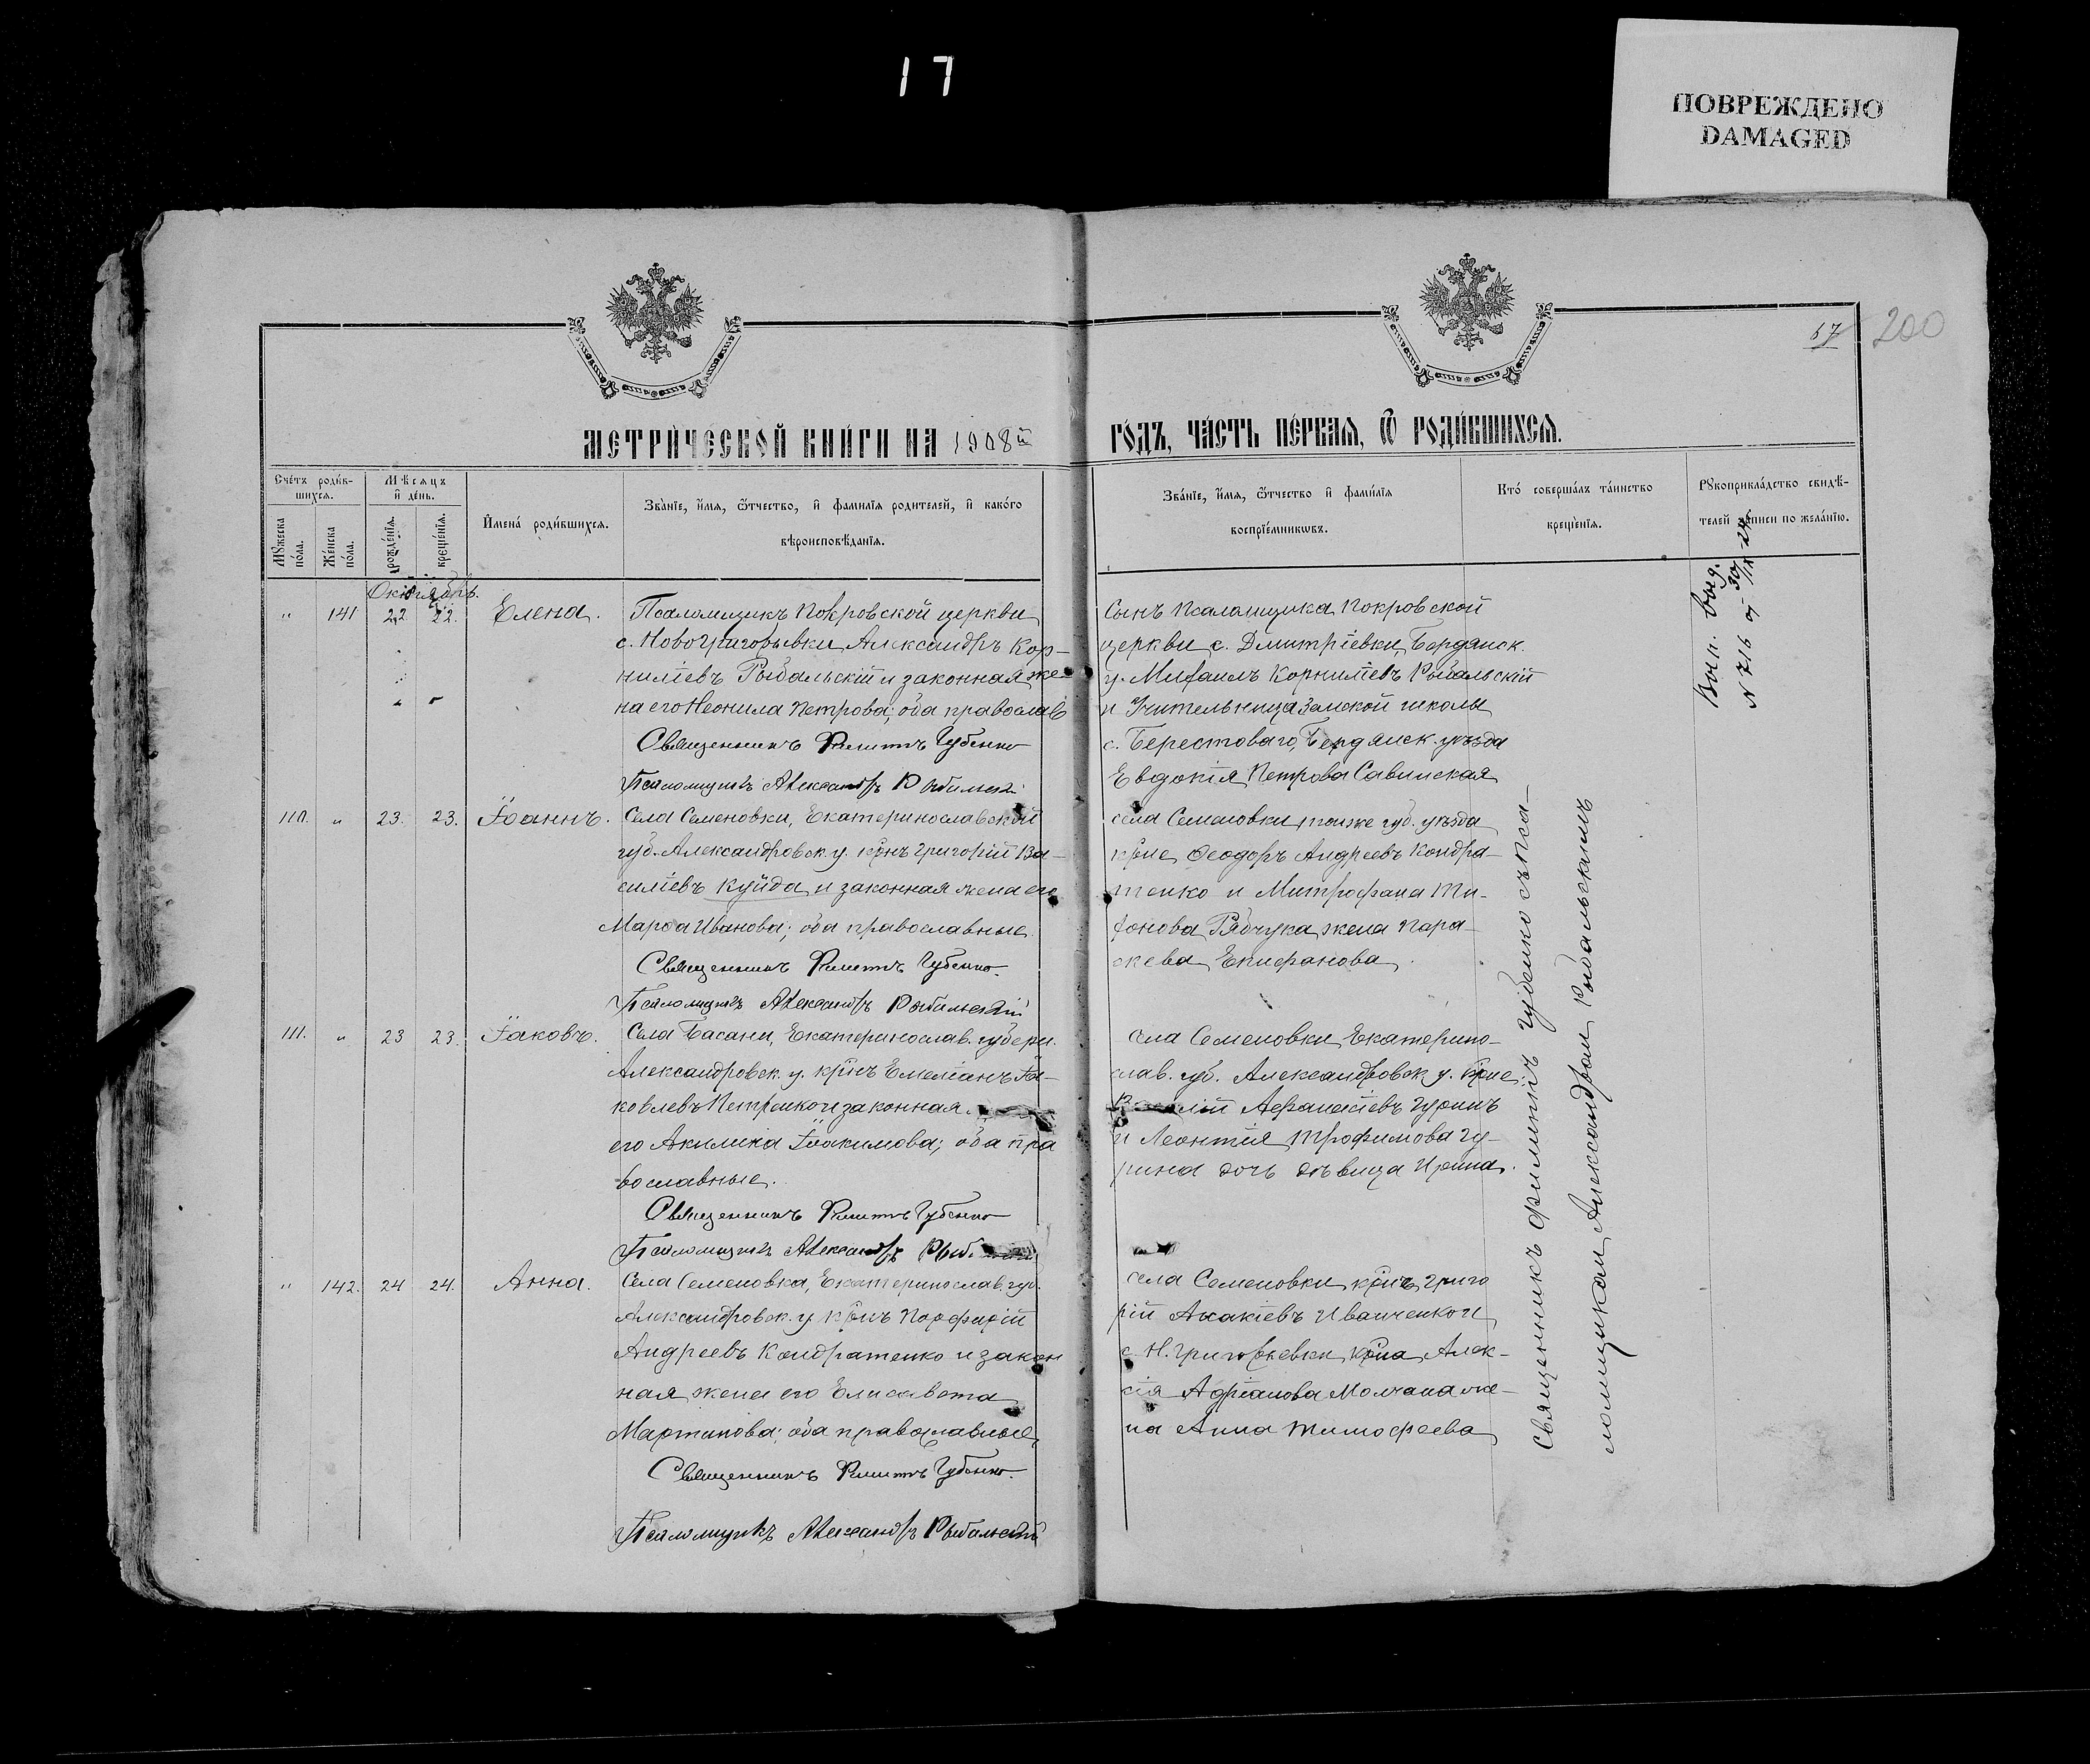 17
ПОВРЕЖДЕНО
DAMAGED
57 200
МЕТРИЧЕСКОЙ КНИГИ НА 1908й ГОДЪ, ЧАСТЬ ПЕРВАЯ, Ѡ РОДИВШИХСЯ.
Счетъ родив-
шихся.
Мѹжеска пола.
Женска пола.
Мѣсяцъ и день.
рожденїя.
крещенїя.
Имена родившихся.
Званїе, имя, ѿтчество, и фамилїя родителей, и какого
вѣроисповѣданїя.
Званїе, имя, ѿтчество и фамилїя
воспрїемникѡвъ.
Кто совершалъ таинство
крещенїя.
Рѹкоприкладство свидѣ-
телей записи по желанїю.
Октябрь.
" 141 22 22. Елена.
Псаломщикъ Покровской церкви
с. Новогригорьевки Александръ Кор-
нилiевъ Рыбальскiй и законная же-
на его Неонила Петрова; оба православ
Священникъ Филиппъ Губенко
Псаломщикъ Александръ Рыбальскiй
Сынъ псаломщика Покровской
церкви с. Дмитрiевки, Бердянск.
у. Михаилъ Корнилiевъ Рыбальскiй
и Учительница Земской школы
с. Берестоваго, Бердянск. уѣзда
Евдокiя Петрова Савинская
Вып. выд.
N 716
110. " 23. 23. Іоаннъ.
Села Семеновки, Екатеринославской
губ. Александровск. у. крнъ Григорiй Ва-
силiевъ Куйда и законная жена его
Марѳа Иванова; оба православные
Священникъ Филиппъ Губенко.
Псаломщикъ Александръ Рыбальскiй
села Семеновки, тойже губ. уѣзда
крне Ѳеодоръ Андреевъ Кондра-
тенко и Митрофана Ти-
хонова Рябчука жена Пара-
скева Епифанова.
111. " 23 23. Іаковъ.
Села Басани, Екатеринослав. губерн.
Александровск. у. крнъ Емелiанъ Іа-
ковлевъ Петренко и законная
его Акилина Іоакимова; оба пра
вославные.
Священникъ Филиппъ Губенко
Псаломщикъ Александръ Рыб
села Семеновки Екатерино-
слав. губ. Александровск. у. крне:
Аѳанасiевъ Гуринъ
и Леонтiя Трофимова Гу-
рина дочь дѣвица Ирина.
" 142. 24 24. Анна.
Села Семеновка, Екатеринослав. губ.
Александровск. у. крнъ Порфирiй
Андреевъ Кондратенко и закон
ная жена его Елисавета
Мартинова; оба православные,
Священникъ Филиппъ Губенко.
Псаломщикъ Александръ Рыбальскiй
села Семеновки крнъ Григо
рiй Акакiевъ Иванченко и
с. Н. Григорьевки крна Алек-
сiя Адрiанова Молчана же-
на Анна Тимоѳеева
Священникъ Филиппъ Губенко съ пса-
ломщикомъ Александромъ Рыбальскимъ